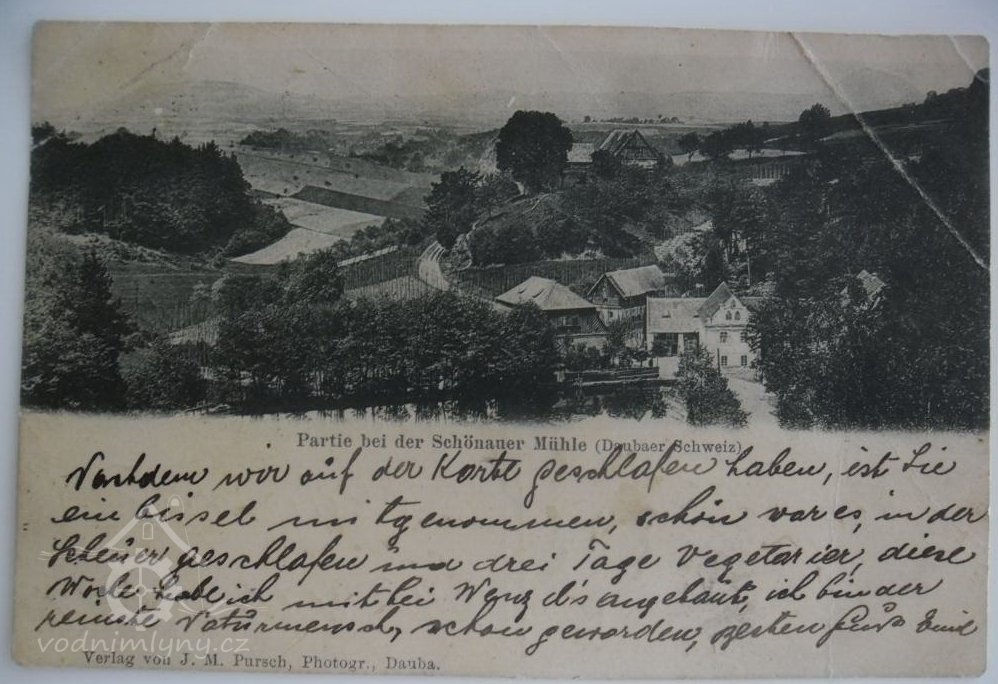 Partie bei der Schönauer Mühle (Daubaer Schweiz)
Nachdem wor auf der Karte geschlafen haben, ist Sie
ein bissel mitgenommen, schön war es, in der
Scheuer geschlafen und drei Tage Vegetarier, diese
Woche habe ich mit bei angebaut, ich bin der
reinste Naturmensch, schon geworden, besten Gruß Emil
vodnimlyny.cz
Verlag von J. M. Pursch, Photogr., Dauba.